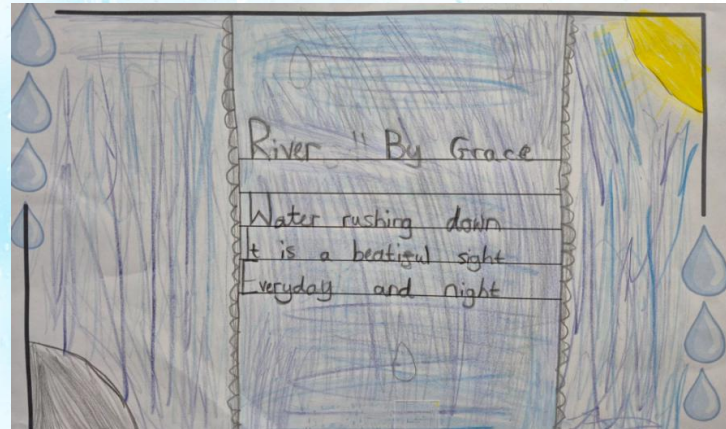 River " By Grace
Water rushing down
It is a beatiful sight
Everyday and night